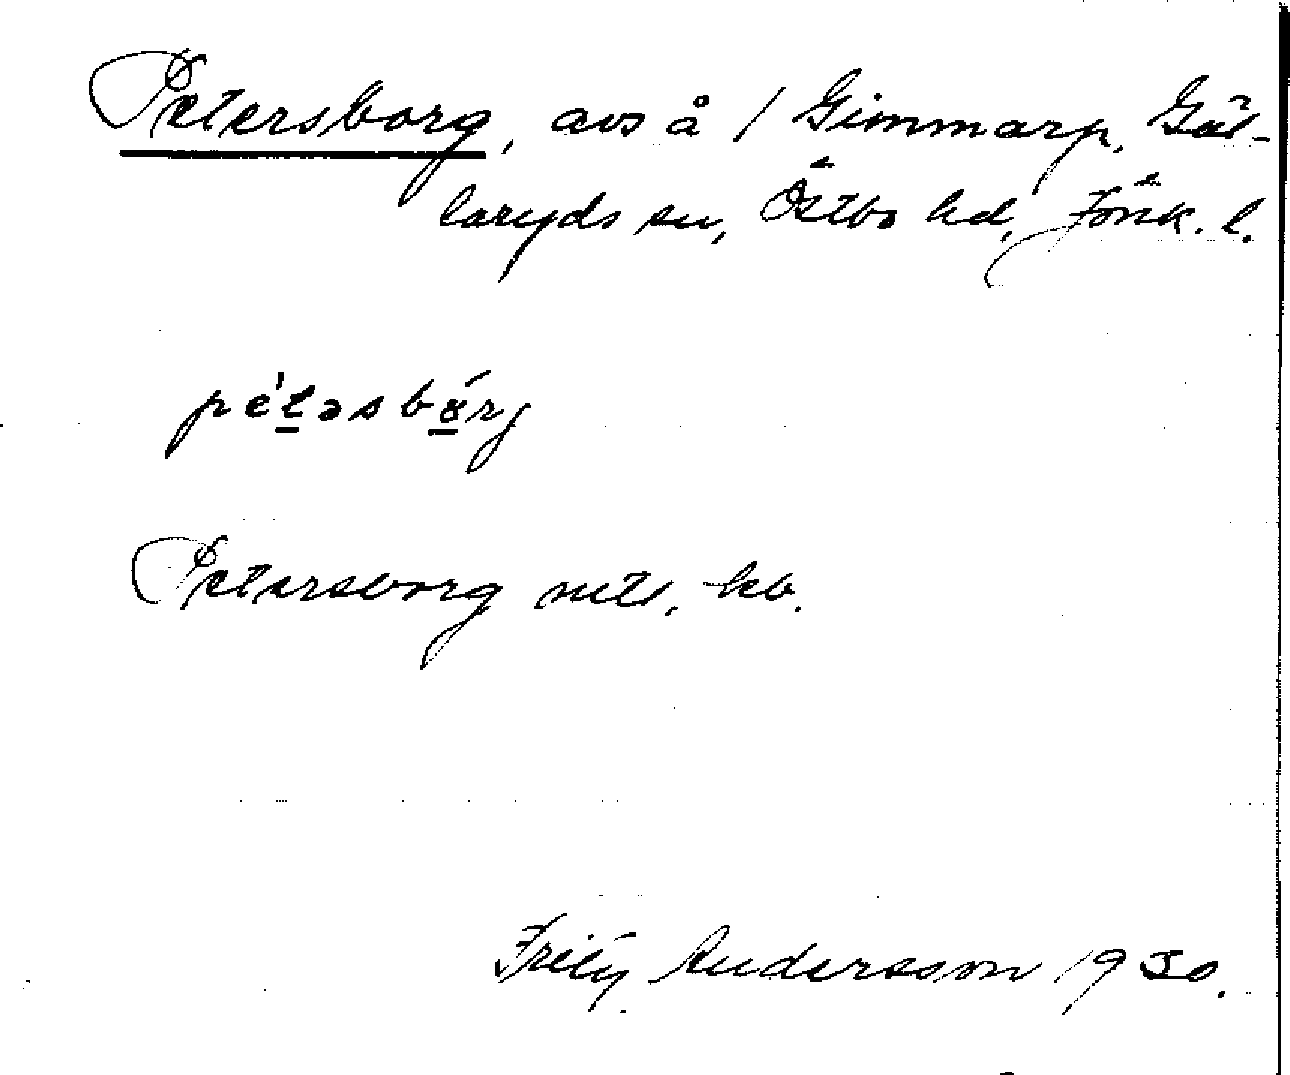 Petersborg, avs å / Gimmarp, Gäl-
laryds sn, Östbo hd, Jönk. l.
pe'təsbǿrg
Petersborg mtl, kb.
Fritz Andersson 1930.